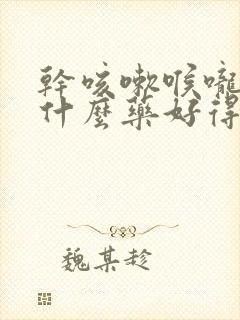 幹咳嗽喉嚨
什麼藥好得
魏某趁